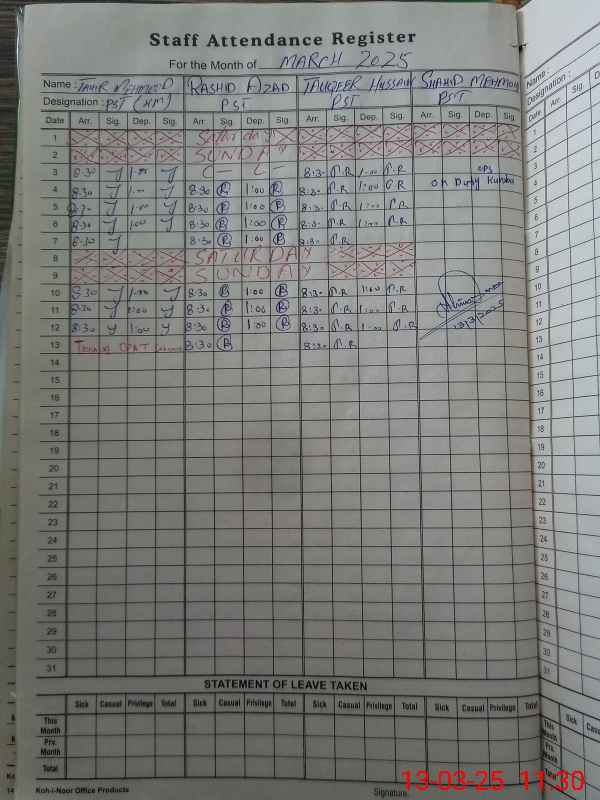 Staff Attendance Register
For the Month of MARCH 2025
Name : TAHIR MEHMOOD RASHID AZAD TAUQEER HUSSAIN SHAHID MEHMOOD
Designation : PST (HM) PST PST PST
Date Arr. Sig. Dep. Sig. Arr. Sig. Dep. Sig. Arr. Sig. Dep. Sig. Arr. Sig.
1 Saturday
2 SUNDAY
3 8:30 1:00 C-L 8:30 P.R 1:00 P.R
4 8:30 1:00 8:30 R 1:00 R 8:30 P.R 1:00 P.R on Duty
5 8:30 1:00 8:30 R 1:00 R 8:30 P.R 1:00 P.R
6 8:30 1:00 8:30 R 1:00 R 8:30 P.R 1:00 P.R
7 8:30 8:30 R 1:00 R 8:30 P.R
8 SATURDAY
9 SUNDAY
10 8:30 1:00 8:30 R 1:00 R 8:30 P.R 1:00 P.R
11 8:30 1:00 8:30 R 1:00 R 8:30 P.R 1:00 P.R
12 8:30 1:00 8:30 R 1:00 R 8:30 P.R 1:00 P.R 13/3/2025
13 8:30 R 8:30 P.R
14
15
16
17
18
19
20
21
22
23
24
25
26
27
28
29
30
31
STATEMENT OF LEAVE TAKEN
Sick Casual Privilege Total Sick Casual Privilege Total Sick Casual Privilege Total Sick Casual Privilege Total
This Month
Prv. Month
Total
Koh-i-Noor Office Products
Signature
13-03-25 11:30
Name :
Designation :
Date Arr. Sig.
1
2
3
4
5
6
7
8
9
10
11
12
13
14
15
16
17
18
19
20
21
22
23
24
25
26
27
28
29
30
31
Sick Casual
This Month
Prv. Month
Total